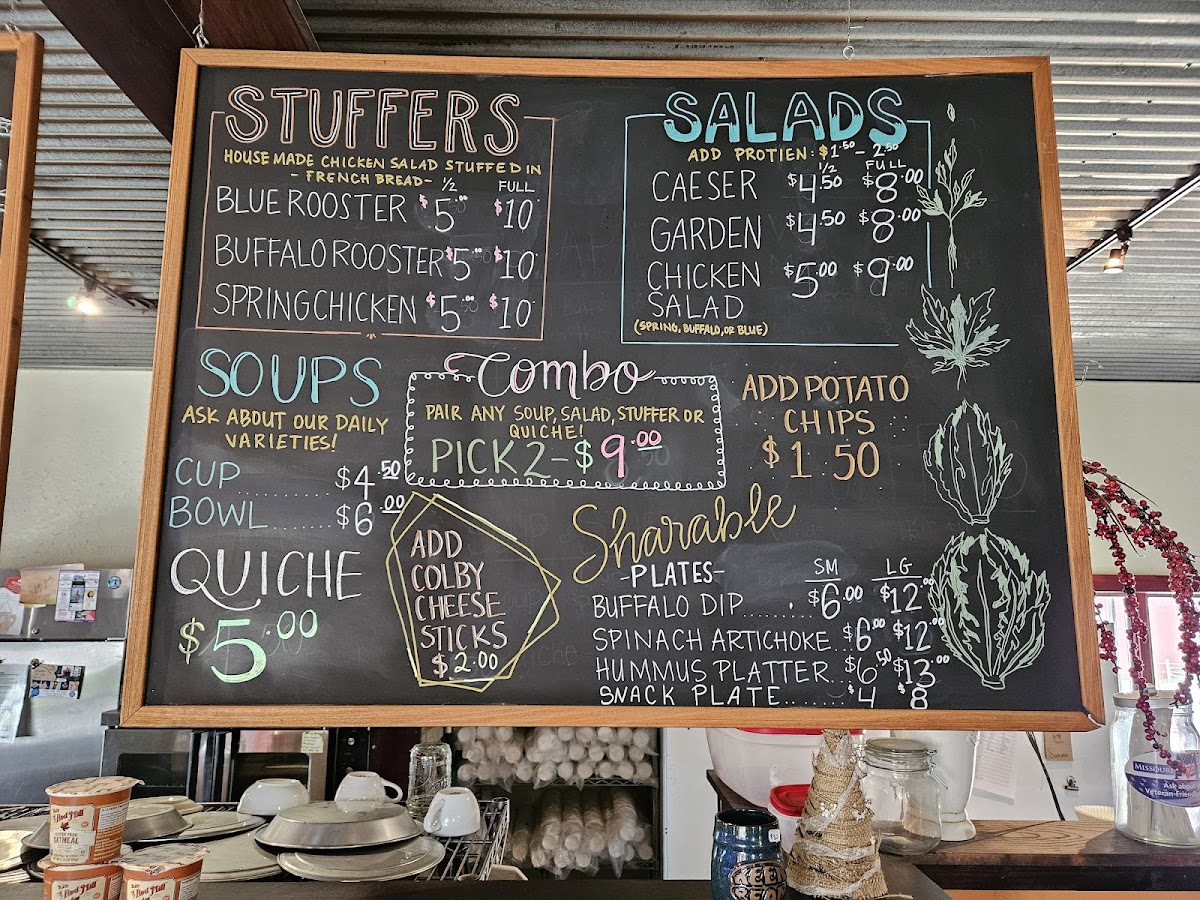 STUFFERS
HOUSE MADE CHICKEN SALAD STUFFED IN
- FRENCH BREAD-
½ FULL
BLUE ROOSTER $5.00 $10
BUFFALO ROOSTER $5.00 $10
SPRING CHICKEN $5.00 $10
SALADS
ADD PROTIEN: $1.50 - 2.50
½ FULL
CAESER $4.50 $8.00
GARDEN $4.50 $8.00
CHICKEN $5.00 $9.00
SALAD
(SPRING, BUFFALO, OR BLUE)
SOUPS
ASK ABOUT OUR DAILY
VARIETIES!
CUP ........ $4.50
BOWL ...... $6.00
QUICHE
$5.00
Combo
PAIR ANY SOUP, SALAD, STUFFER OR
QUICHE!
PICK 2 - $9.00
ADD POTATO
CHIPS
$1.50
ADD
COLBY
CHEESE
STICKS
$2.00
Sharable
-PLATES-
SM LG
BUFFALO DIP...... $6.00 $12.00
SPINACH ARTICHOKE.. $6.00 $12.00
HUMMUS PLATTER... $6.50 $13.00
SNACK PLATE........ $4 $8
Red Mill
OATMEAL
Red Mill
Red Mill
MISSOURI
Ask about
Veteran-Friendly